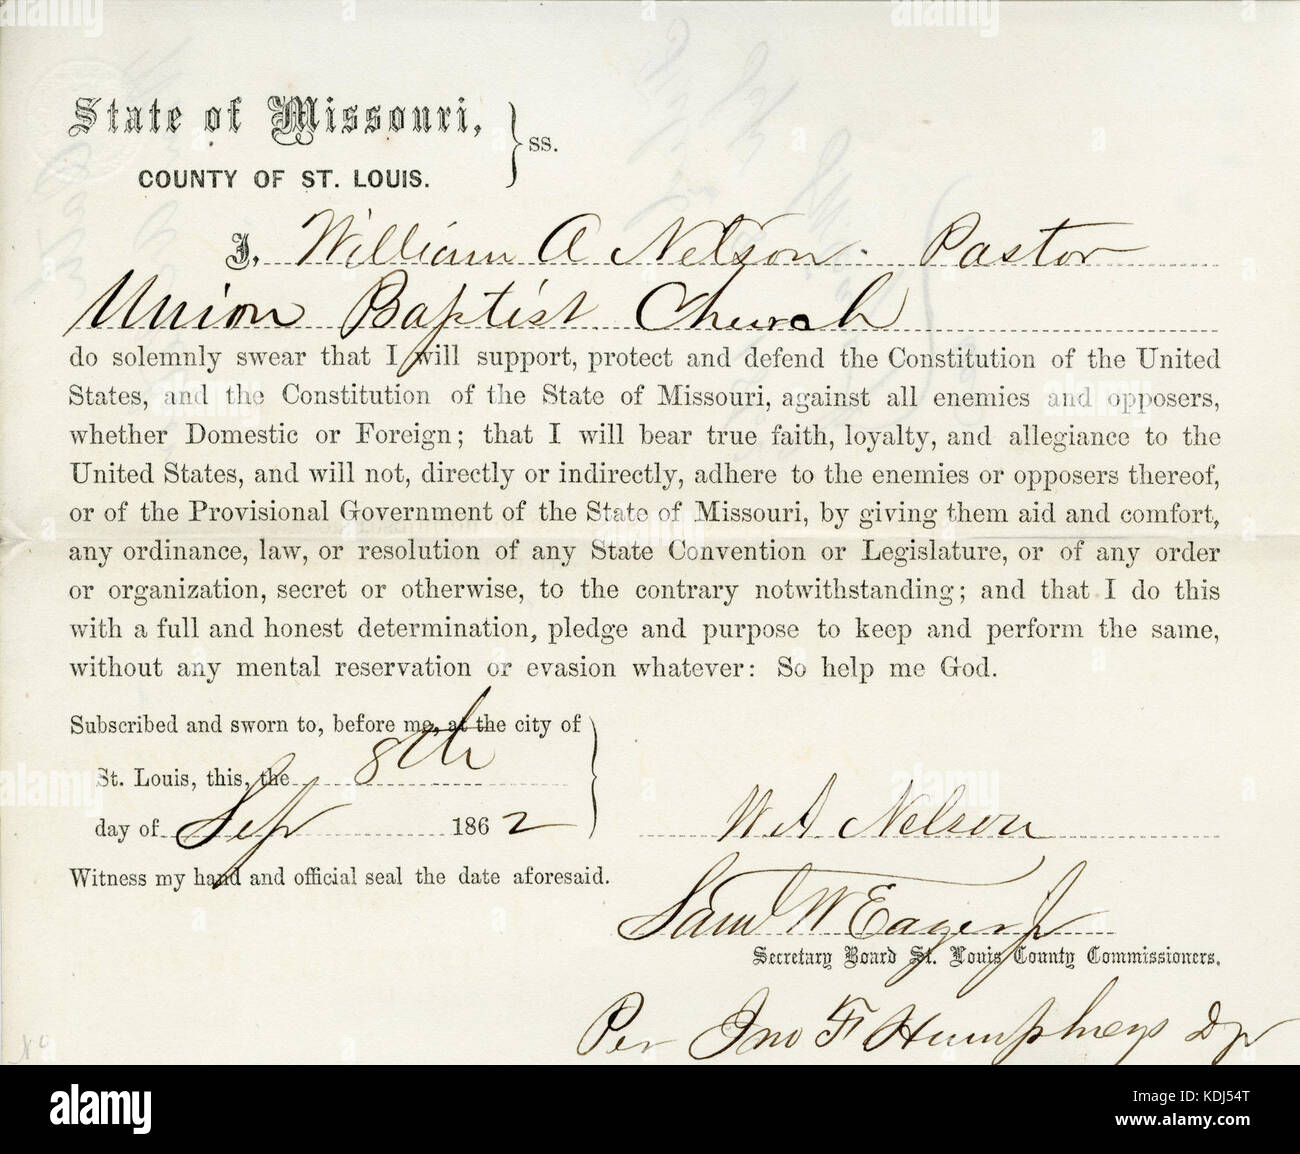 State of Missouri, } ss.
COUNTY OF ST. LOUIS.
I, William A Nelson. Pastor
Union Baptist Church
do solemnly swear that I will support, protect and defend the Constitution of the United
States, and the Constitution of the State of Missouri, against all enemies and opposers,
whether Domestic or Foreign; that I will bear true faith, loyalty, and allegiance to the
United States, and will not, directly or indirectly, adhere to the enemies or opposers thereof,
or of the Provisional Government of the State of Missouri, by giving them aid and comfort,
any ordinance, law, or resolution of any State Convention or Legislature, or of any order
or organization, secret or otherwise, to the contrary notwithstanding; and that I do this
with a full and honest determination, pledge and purpose to keep and perform the same,
without any mental reservation or evasion whatever: So help me God.
Subscribed and sworn to, before me, at the city of
St. Louis, this, the 8th
day of Sep 1862
W A Nelson
Witness my hand and official seal the date aforesaid.
Saml W Eager Jr
Secretary Board St. Louis County Commissioners.
Per Jno F Humphreys Dpy
alamy
Image ID: KDJ54T
www.alamy.com